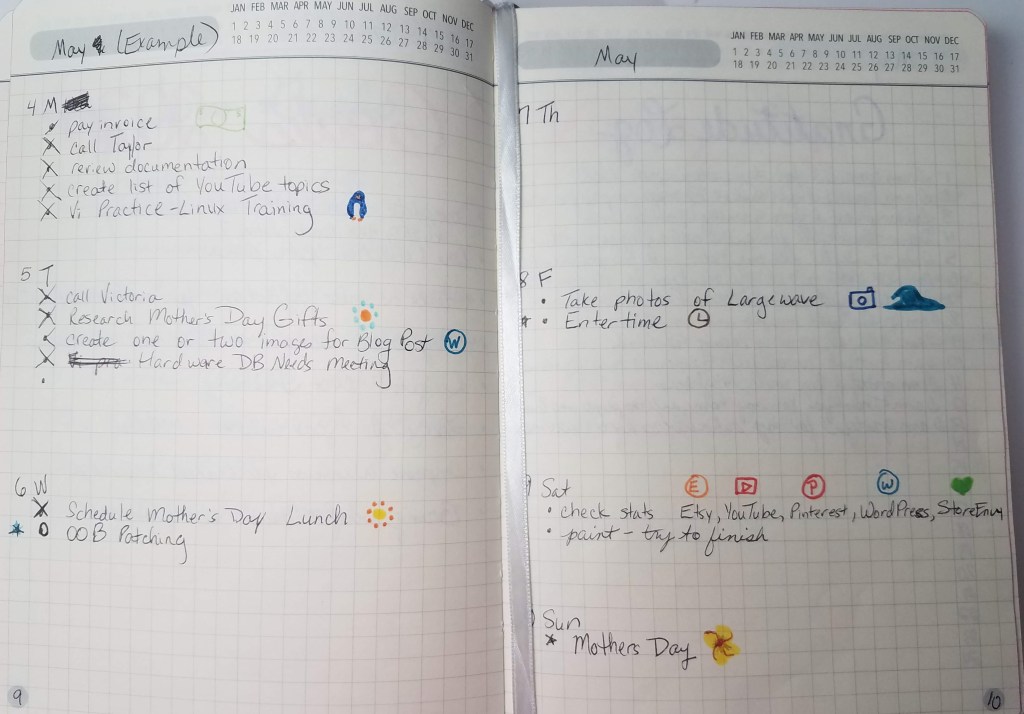 May (Example)
JAN FEB MAR APR MAY JUN JUL AUG SEP OCT NOV DEC
1 2 3 4 5 6 7 8 9 10 11 12 13 14 15 16 17
18 19 20 21 22 23 24 25 26 27 28 29 30 31
4 M
pay invoice
call Taylor
review documentation
create list of YouTube topics
Vi Practice - Linux Training
5 T
call Victoria
Research Mother's Day Gifts
create one or two images for Blog Post W
Hardware DB Needs meeting
6 W
Schedule Mother's Day Lunch
OOB Patching
9
May
JAN FEB MAR APR MAY JUN JUL AUG SEP OCT NOV DEC
1 2 3 4 5 6 7 8 9 10 11 12 13 14 15 16 17
18 19 20 21 22 23 24 25 26 27 28 29 30 31
7 Th
8 F
Take photos of Large wave
Enter time
Sat
E P W
check stats Etsy, YouTube, Pinterest, WordPress, StoreEnvy
paint - try to finish
Sun
Mothers Day
10